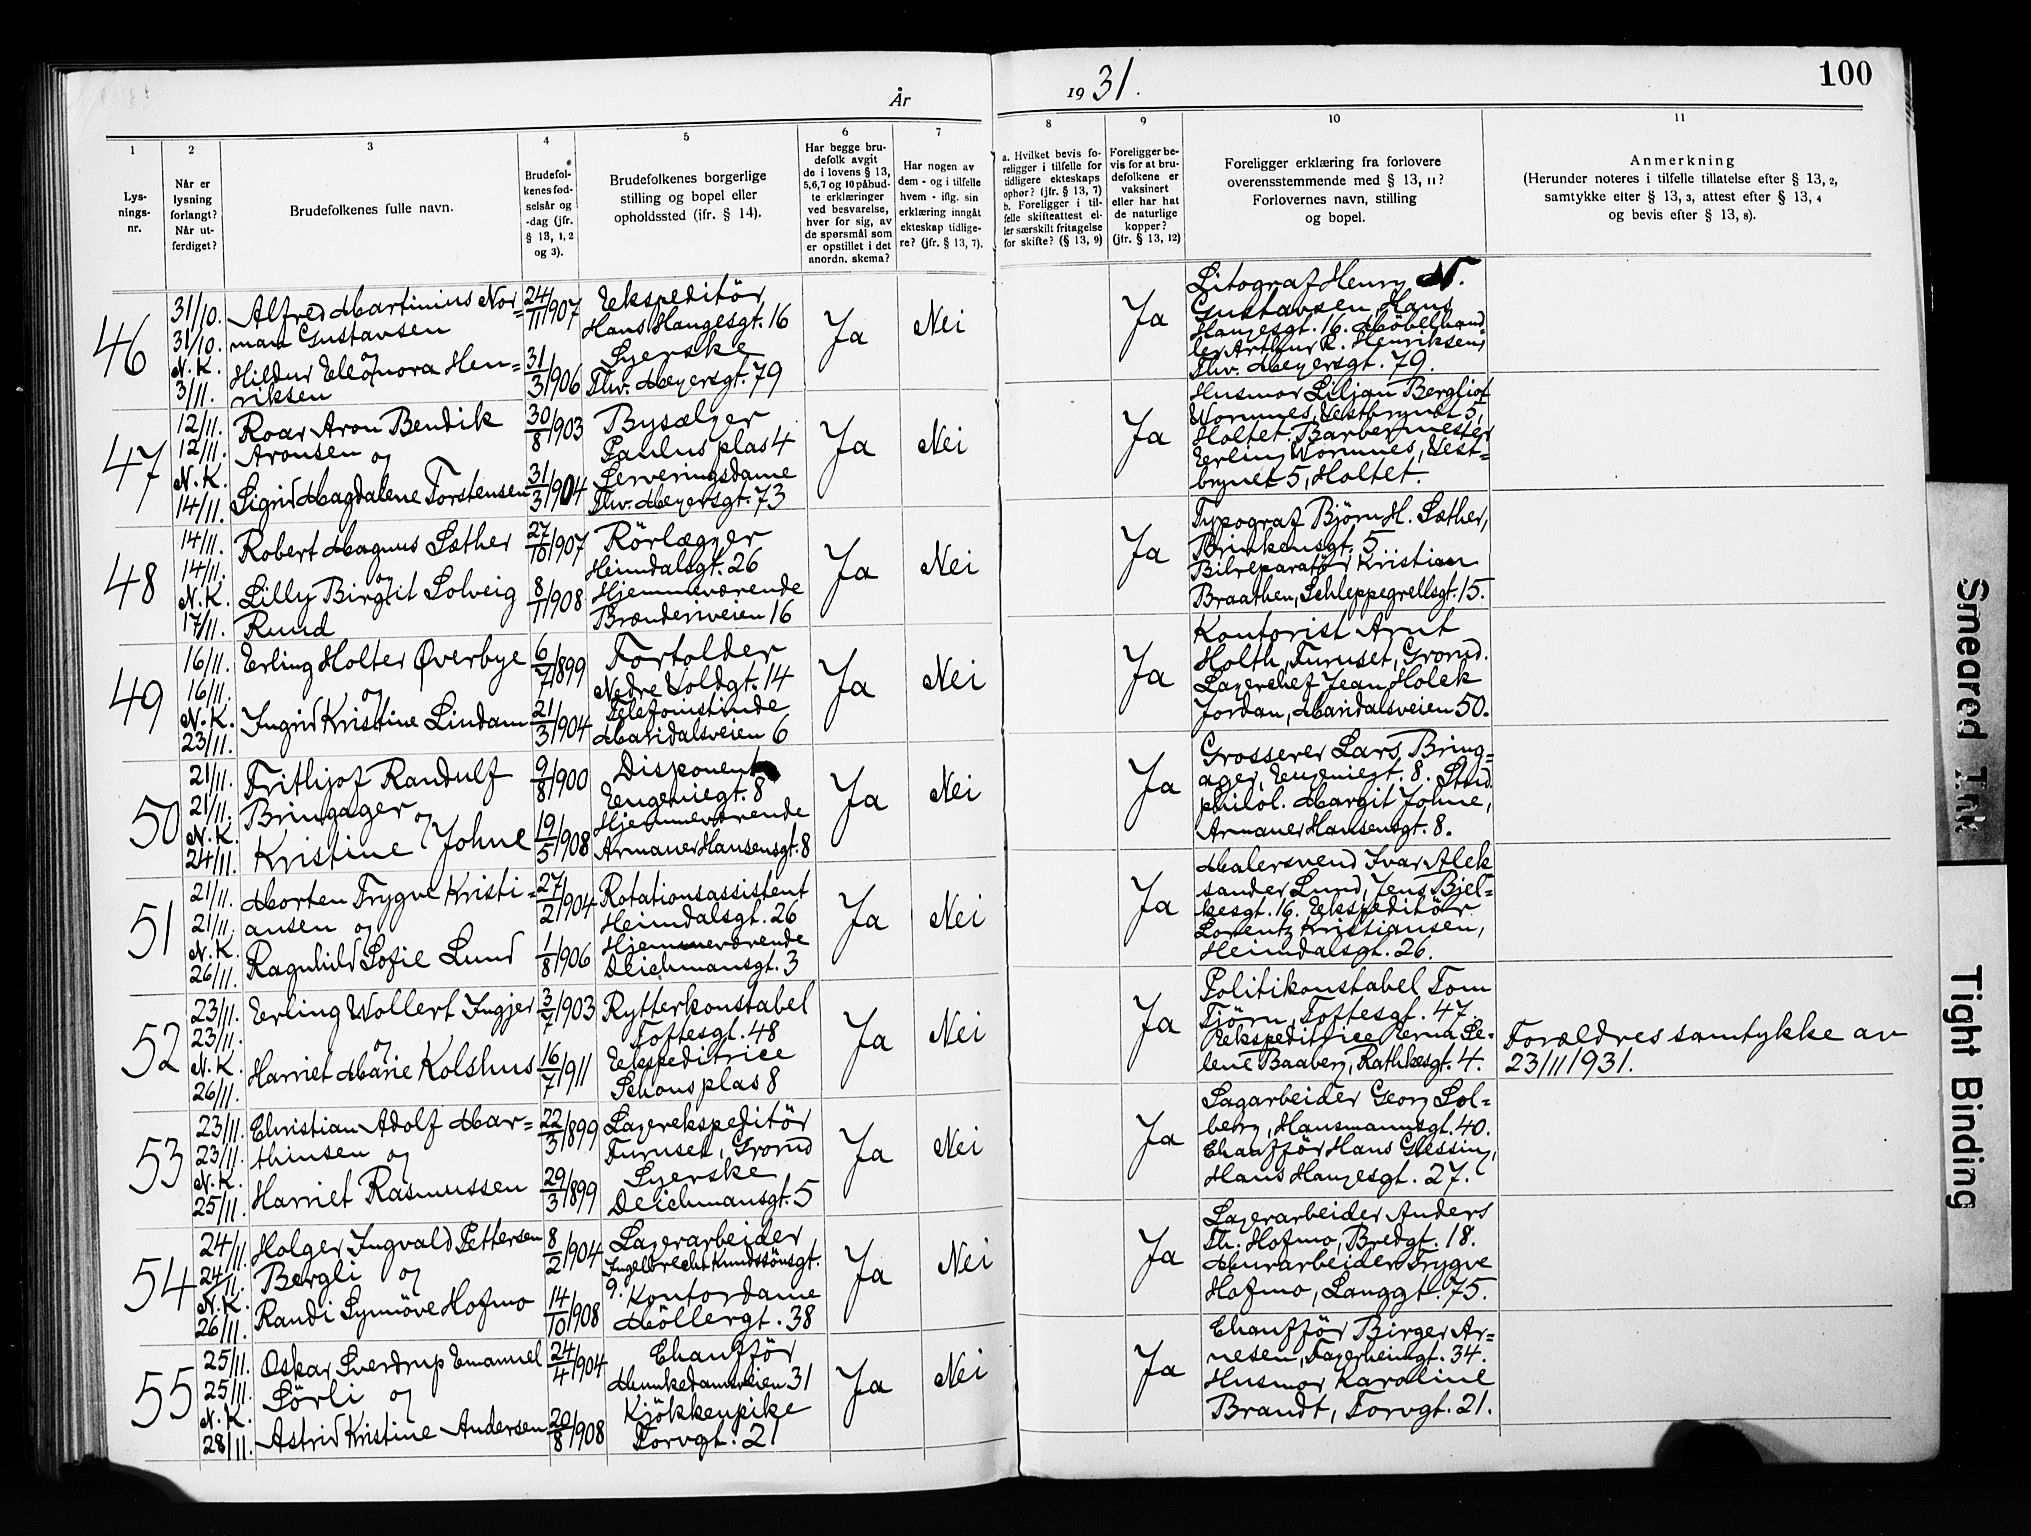 År
19 31.
100
1
2
3
4
5
6
7
8
9
10
11
Lys-
nings-
nr.
Når er
lysning
forlangt?
Når ut-
ferdiget?
Brudefolkenes fulle navn.
Brudefol-
kenes fød-
selsår og
-dag (jfr.
§ 13, 1, 2
og 3).
Brudefolkenes borgerlige
stilling og bopel eller
opholdssted (jfr. § 14).
Har begge bru-
defolk avgit
de i lovens § 13,
5,6,7 og 10 påbud-
te erklæringer
ved besvarelse,
hver for sig, av
de spørsmål som
er opstillet i det
anordn. skema?
Har nogen av
dem - og i tilfelle
hvem - iflg. sin
erklæring inngått
ekteskap tidlige-
re? (jfr. § 13, 7).
a. Hvilket bevis fo-
religger i tilfelle for
tidligere ekteskaps
ophør? (jfr. § 13, 7)
b. Foreligger i til-
felle skifteattest el-
ler særskilt fritagelse
for skifte? (§ 13, 9)
Foreligger be-
vis for at bru-
defolkene er
vaksinert
eller har hat
de naturlige
kopper?
(jfr. § 13, 12)
Foreligger erklæring fra forlovere
overensstemmende med § 13, 11?
Forlovernes navn, stilling
og bopel.
Anmerkning
(Herunder noteres i tilfelle tillatelse efter § 13, 2,
samtykke efter § 13, 3, attest efter § 13, 4
og bevis efter § 13, 8).
46
31/10.
31/10.
N.K.
3/11.
Alfred Martinius Nor=
man Gustavsen
og
Hildur Eleonora Hen=
riksen
24/11 1907
31/3 1906
Ekspeditör
Hans Haugesgt. 16
Syerske
Thv. Meyersgt. 79
Ja
Nei
Ja
Litograf Henry N.
Gustavsen, Hans
Haugesgt. 16. Möbelhand
ler Arthur R. Henriksen,
Thv. Meyersgt. 79.
47
12/11.
12/11.
N.K.
14/11.
Roar Aron Bendik
Aronsen og
Sigrid Magdalene Torstensen
30/8 1903
31/3 1904
Bysælger
Paulus plas 4
Serveringsdame
Thv. Meyersgt. 73
Ja
Nei
Ja
Husmor Liljan Bergliot
Wormnes, Vestbrynet 5,
Holtet. Barbermester
Erling Wormnes, Vest=
brynet 5, Holtet.
48
14/11.
14/11.
N.K.
17/11.
Robert Magnus Sæther
og
Lilly Birgit Solveig
Rund
27/10 1907
8/11 1908
Rörlægger
Heimdalsgt. 26
Hjemmeværende
Brænderiveien 16
Ja
Nei
Ja
Typograf Björn H. Sæther,
Brinkensgt. 5
Bilreparatör Kristian
Braathen, Schleppegrellsgt. 15.
49
16/11.
16/11.
N.K.
23/11.
Erling Holter Øverbye
og
Ingrid Kristine Lindam
6/7 1899
21/3 1904
Fortolder
Nedre Voldgt. 14
Telefonistinde
Maridalsveien 6
Ja
Nei
Ja
Kontorist Arnt
Holth, Furuset, Grorud.
Lagerchef Jean Holck
Jordan, Maridalsveien 50.
50
21/11.
21/11.
N.K.
24/11.
Frithjof Randulf
Bringager og
Kristine Johne
9/8 1900
19/5 1908
Disponent
Eugeniegt. 8
Hjemmeværende
Armauer Hansensgt. 8
Ja
Nei
Ja
Grosserer Lars Bring=
ager, Eugeniegt. 8. Stud.
philol. Margit Johne,
Armauer Hansensgt. 8.
51
21/11.
21/11.
N.K.
26/11.
Morten Trygve Kristi=
ansen og
Ragnhild Sofie Lund
27/2 1904
1/8 1906
Rotationsassistent
Heimdalsgt. 26
Hjemmeværende
Deichmansgt. 3
Ja
Nei
Ja
Malersvend Ivar Alek
sander Lund, Jens Bjel=
kesgt. 16. Ekspeditör
Lorentz Kristiansen,
Heimdalsgt. 26.
52
23/11.
23/11.
N.K.
26/11.
Erling Wollert Ingjer
og
Harriet Marie Kolshus
3/7 1903
16/7 1911
Rytterkonstabel
Toftesgt. 48
Ekspeditrice
Schous plas 8
Ja
Nei
Ja
Politikonstabel Tom
Tjörn, Toftesgt. 47.
Ekspeditrice Erna Le=
lene Baaberg, Rathkesgt. 4.
Forældres samtykke av
23/11 1931.
53
23/11.
23/11.
N.K.
25/11.
Christian Adolf Mar=
thinsen og
Harriet Rasmussen
22/3 1899
29/3 1899
Lagerekspeditör
Furuset, Grorud
Syerske
Deichmansgt. 5
Ja
Nei
Ja
Lagarbeider Georg Sol=
berg, Hausmannsgt. 40.
Chafför Hans Glessing,
Hans Haugesgt. 27.
54
24/11.
24/11.
N.K.
26/11.
Holger Ingvald Pettersen
Bergli og
Randi Synnöve Hofmo
8/2 1904
14/10 1908
Lagerarbeider
Ingelbrecht Knudssönsgt.
9. Kontordame
Möllergt. 38
Ja
Nei
Ja
Lagerarbeider Anders
Th. Hofmo, Bredgt. 18.
Murarbeider Trygve
Hofmo, Langgt. 75.
55
25/11.
25/11.
N.K.
28/11.
Oskar Sverdrup Emanuel
Sörli og
Astrid Kristine Andersen
24/4 1904
20/8 1908
Chafför
Munkedamsveien 31
Kjökkenpike
Torvgt. 21
Ja
Nei
Ja
Chafför Birger Ar=
nesen, Fagerheimgt. 34.
Husmor Karoline
Brandt, Torvgt. 21.
Smeared Ink
Tight Binding